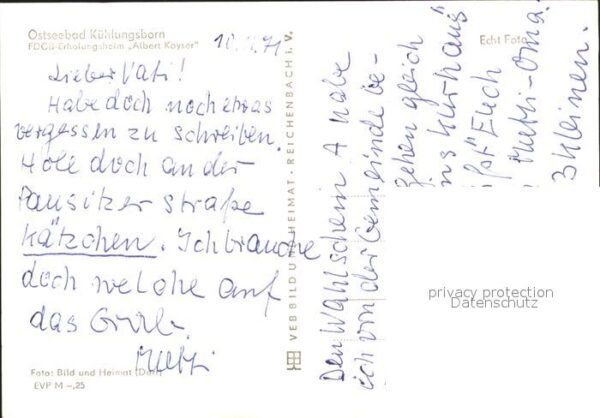 Ostseebad Kühlungsborn
FDGB-Erholungsheim „Albert Kayser"
10. 71
Echt Foto
Lieber Vati!
Habe doch noch etwas
vergessen zu schreiben.
Hole doch an der
Pausitzer straße
Kätzchen. Ich brauche
doch welche auf
das Grab.
Mutti
Foto: Bild und Heimat
EVP M –,25
VEB BILD UND HEIMAT · REICHENBACH i. V.
Den Wahlschein A habe
ich von der Gemeinde be-
gehen gleich
ns Kurhaus
Euch
Mutti-Oma.
3 Kleinen.
privacy protection
Datenschutz